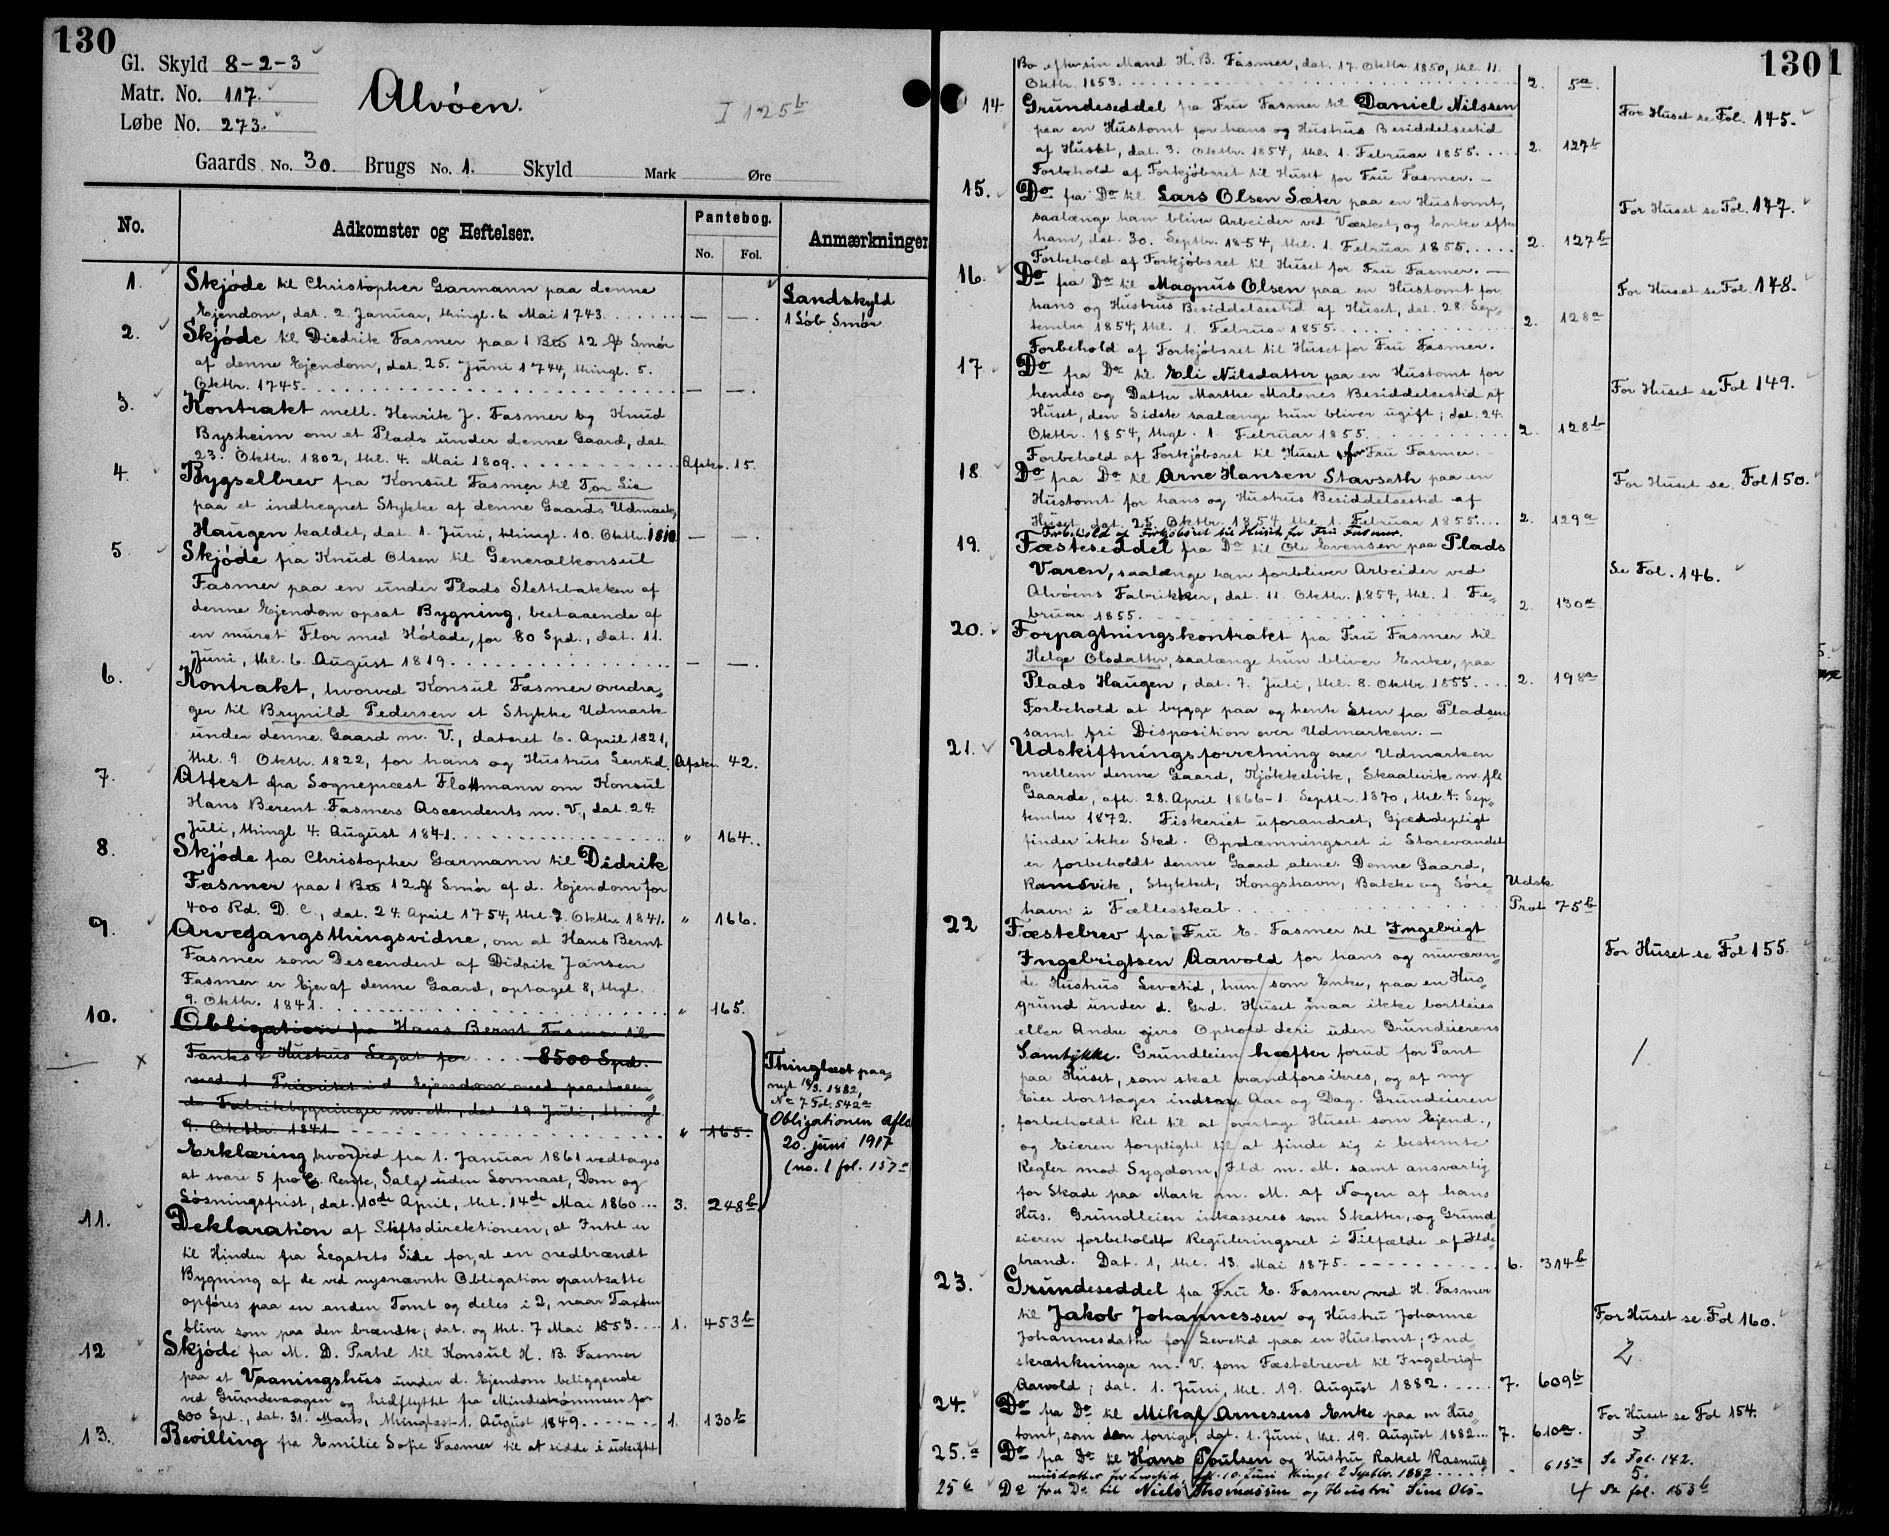 130
Gl. Skyld 8-2-3
Matr. No. 117.
Løbe No. 273.
Alvöen.
I 125b
Gaards No. 30. Brugs No. 1. Skyld Mark Øre
No.
Adkomster og Heftelser.
Pantebog.
No. Fol.
Anmærkninger
1. Skjöde til Christopher Garmann paa denne
Ejendom, dat. 2. Januar, thingl. 6 Mai 1743. — —.
Landskyld
1 Löb Smör
2. Skjöde til Diedrik Fasmer paa 1 Bto 12 ℔ Smör
af denne Ejendom, dat. 25. Juni 1744, thingl. 5.
Oktbr. 1745. — —.
3. Kontrakt mell. Henrik J. Fasmer og Knud
Bysheim om et Plads under denne Gaard, dat.
23. Oktbr. 1802, thl. 4. Mai 1809. Afskr. 15.
4. Bygselbrev fra Konsul Fasmer til Tor Lie
paa et indhegnet Stykke af denne Gaards Udmark,
Haugen kaldet, dat. 1. Juni, thingl. 10. Oktbr. 1810 — —.
5. Skjöde fra Knud Olsen til Generalkonsul
Fasmer paa en under Plads Slettebakken af
denne Ejendom opsat Bygning, bestaaende af
en muret Flor med Hölade, for 80 Spd., dat. 11.
Juni, thl. 6. August 1819. — —.
6. Kontrakt, hvorved Konsul Fasmer overdra-
ger til Brynild Pedersen et Stykke Udmark
under denne Gaard m. V., dateret 6. April 1821,
thl. 9 Oktbr. 1822, for hans og Hustrus Levetid. Afskr. 42.
7. Attest fra Sognepræst Flottmann om Konsul
Hans Berent Fasmers Ascendents m. V., dat. 24.
Juli, thingl 4. August 1841. " 164.
8. Skjöde fra Christopher Garmann til Didrik
Fasmer paa 1 Bto 12 ℔ Smör af d. Ejendom for
400 Rd. D. C., dat. 24. April 1754, thl. 9. Oktbr. 1841. " 166.
9. Arvegangsthingsvidne, om at Hans Bernt
Fasmer som Descendent af Didrik Jansen
Fasmer er Ejer af denne Gaard, optaget 8, thgl.
9. Oktbr. 1841. " 165.
10. Obligation fra Hans Bernt Fasmer til
Fanks & Hustrus Legat for 8500 Spd.
med 1 Prioritet i d. Ejendom med paastaaen-
de Fabrikbygninger m. M., dat. 19. Juli, thingl.
9. Oktbr. 1841. " 165.
Thinglæst paa-
nyt 18/3. 1882,
No 7 Fol. 542a
Obligationen aflæ
20. juni 1917
(no. 1 fol. 157a
Erklæring, hvorved fra 1. Januar 1861 vedtages
at svare 5 pro C. Rente, Salg uden Lovmaal, Dom og
Lösningsfrist, dat. 10de April, thl. 14de Mai 1860 3. 248b
11. Deklaration af Stiftsdirektionen, at Intet er
til Hinder fra Legatets Side for, at en nedbrændt
Bygning af de ved nysnævnte Obligation opantsatte
opföres paa en anden Tomt og deles i 2, naar Taxten
bliver som paa den brændte; dat. og thl. 7 Mai 1853. 1. 453b
12 Skjöde fra M. D. Prahl til Konsul H. B. Fasmer
paa et Vaaningshus under d. Ejendom beliggende
ved Grundevaagen og hidflyttet fra Mindeströmmen for
800 Spd., dat. 31. Marts, thinglæst 1. August 1849. 1. 130b
13. Bevilling fra Emilie Sofie Fasmer til at sidde i uskiftet
1301
Bo efter sin Mand H. B. Fasmer, dat. 17. Oktbr. 1850, thl. 11.
Oktbr. 1853. 2. 5a
14 Grundeseddel fra Fru Fasmer til Daniel Nilssen
paa en Hustomt for hans og Hustrus Besiddelsestid
af Huset, dat. 3. Oktbr. 1854, thl. 1. Februar 1855. 2. 127b
Forbehold af Forkjöbsret til Huset for Fru Fasmer. —
For Huset se Fol. 145.
15. Do fra Do til Lars Olsen Sæter paa en Hustomt,
saalænge han bliver Arbeider ved Værket, og Enke efter
ham, dat. 30. Septbr. 1854, thl. 1. Februar 1855. 2. 127b
Forbehold af Forkjöbsret til Huset for Fru Fasmer. —
For Huset se Fol. 147.
16. Do fra Do til Magnus Olsen paa en Hustomt for
hans og Hustrus Besiddelsestid af Huset, dat. 28. Sep-
tember 1854, thl. 1. Februar 1855. 2. 128a
Forbehold af Forkjöbsret til Huset for Fru Fasmer.
For Huset se Fol. 148.
17 Do fra Do til Eli Nilsdatter paa en Hustomt for
hendes og Datter Marthe Malenes Besiddelsestid af
Huset, den Sidste saalænge hun bliver ugift; dat. 24.
Oktbr. 1854, thgl. 1. Februar 1855. 2. 128b
Forbehold af Forkjöbsret til Huset for Fru Fasmer.
For Huset se Fol 149.
18. Do fra Do til Arne Hansen Stavseth paa en
Hustomt for hans og Hustrus Besiddelsestid af
Huset, dat. 25. Oktbr. 1854, thl. 1. Februar 1855. 2. 129a
Forbehold af Forkjöbsret til Huset for Fru Fasmer.
For Huset se Fol 150.
19. Fæsteseddel fra Do til Ole Evensen paa Plads
Varen, saalænge han forbliver Arbeider ved
Alvöens Fabrikker, dat. 11. Oktbr. 1854, thl. 1. Fe-
bruar 1855. 2. 130a
Se Fol. 146.
20. Forpagtningskontrakt fra Fru Fasmer til
Helge Olsdatter, saalænge hun bliver Enke, paa
Plads Haugen, dat. 7. Juli, thl. 8. Oktbr. 1855. 2. 198a
Forbehold at bygge paa og hente Sten fra Pladsen
samt fri Disposition over Udmarken. —
21. Udskiftningsforretning over Udmarken
mellem denne Gaard, Kjökkelvik, Skaalevik m. fl.
Gaarde, afh. 28. April 1866 - 1. Septbr. 1870, thl. 4. Sep-
tember 1872. Fiskeriet uforandret, Gjærdepligt
finder ikke Sted. Opdæmningsret i Storevandet
er forbeholdt denne Gaard alene. Denne Gaard,
Ramsvik, Stykket, Kongshavn, Bakke og Göre-
havn i Fællesskab. Udsk Prot 75b
22 Fæstebrev fra Fru E. Fasmer til Ingebrigt
Ingebrigtsen Aarvold for hans og nuværen-
de Hustrus Levetid, hun som Enke, paa en Hus-
grund under d. Grd. Huset maa ikke bortleies
eller Andre gives Ophold deri uden Grundeierens
Samtykke. Grundleien hæfter forud for Pant
paa Huset, som skal brandforsikres, og af ny
Eier borttages inden Aar og Dag. Grundeieren
forbeholdt Ret til at overtage Huset som Ejend.,
og Eieren forpligtet til at finde sig i bestemte
Regler mod Sygdom, Ild m. M. samt ansvarlig
for Skade paa Mark m. M. af Nogen af hans
Hus. Grundleien inkasseres som Skatter, og Grund-
eieren forbeholdt Reguleringsret i Tilfælde af Ilde-
brand. Dat. 1, thl. 13. Mai 1875. 6. 314b
For Huset se Fol 155.
1
23. Grundeseddel fra Fru E. Fasmer ved H. Fasmer
til Jakob Johannessen og Hustru Johanne
Johannesdatter for Levetid paa en Hustomt; Ind-
skrænkninger m. V. som Fæstebrevet til Ingebrigt
Aarvold; dat. 1. Juni, thl. 19. August 1882. 7. 609b
For Huset se Fol 160.
2.
24. Do fra Do til Mikal Arnesens Enke paa en Hus-
tomt, som den forrige, dat. 1. Juni, thl. 19. August 1882. 7. 610a.
For Huset se Fol 154.
3
25.a Do fra Do til Hans Poulsen og Hustru Rakel Rasmus-
musdatter for Levetid, dat. 10. Juni thingl. 2 Septbr. 1882 615a
Se Fol. 142.
5.
25b Do fra Do til Niels Thomassen og Hustru Sine Ols-
4 Se fol. 153b